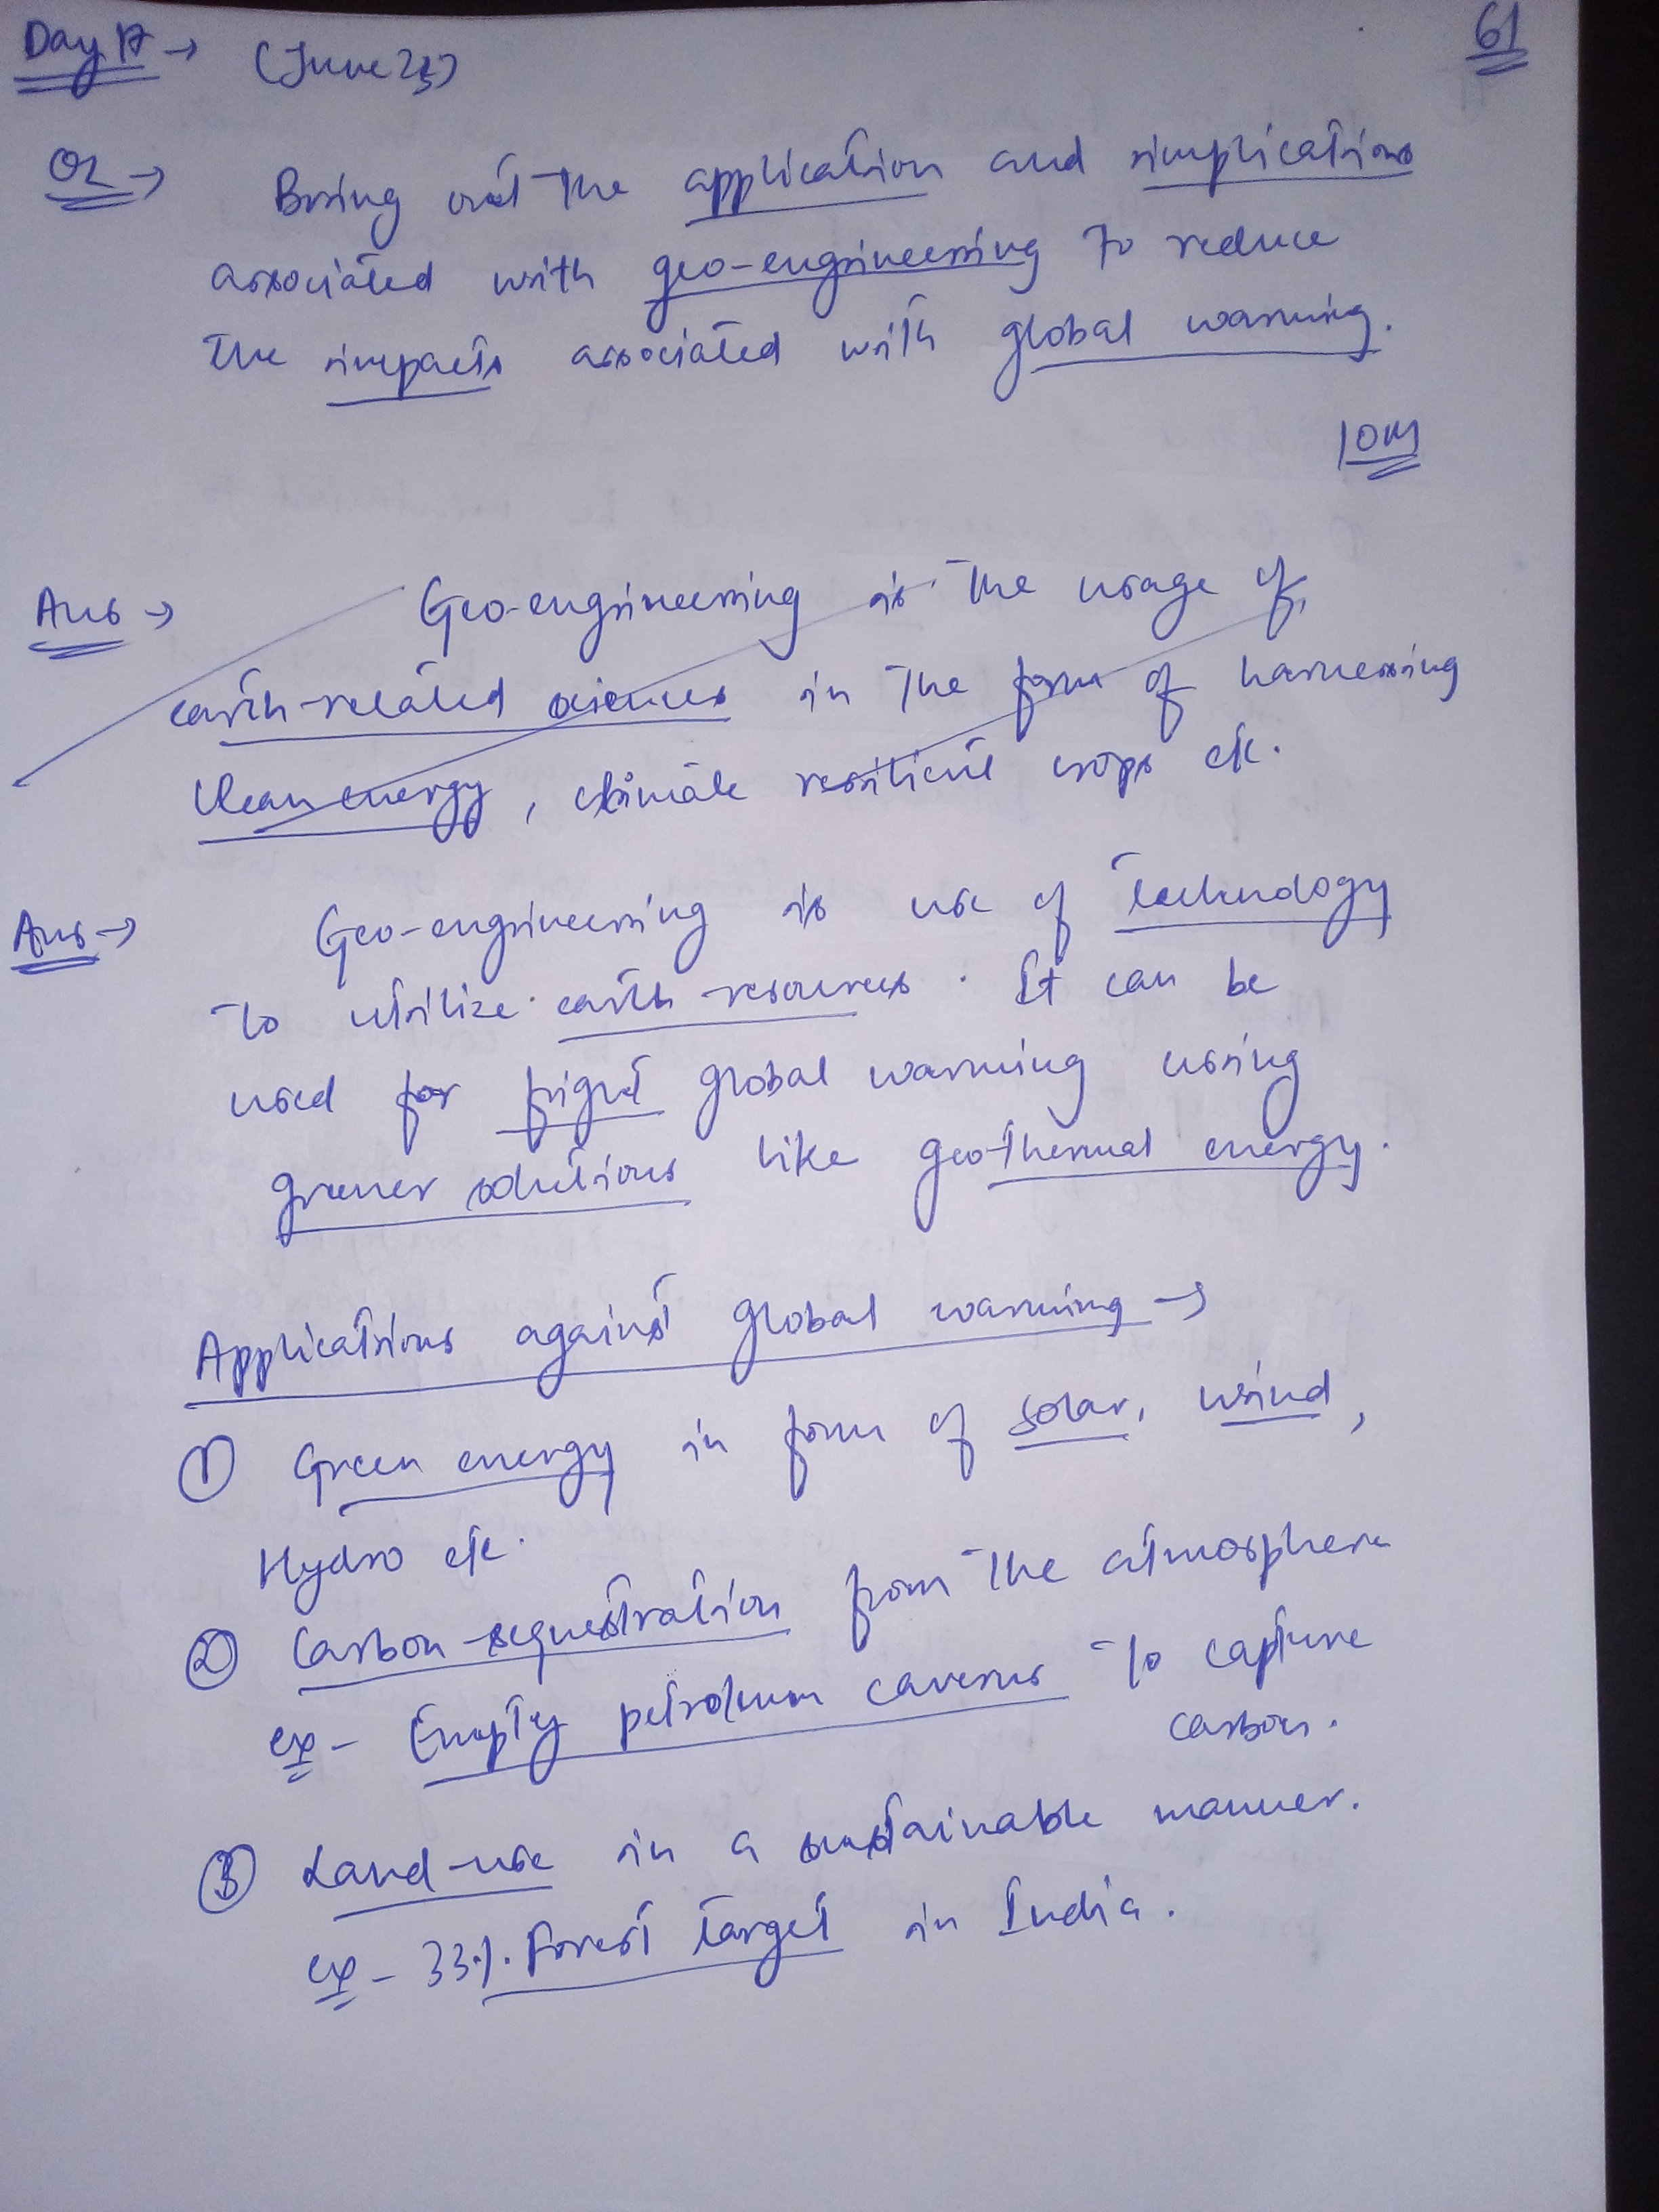 Day 17 → (June 23)
61
Q2 → Bring out the application and implications
associated with geo-engineering to reduce
the impacts associated with global warming.
10M
Ans → Geo-engineering is the usage of
earth-related sciences in the form of harnessing
clean energy, climate resilient crops etc.
Ans → Geo-engineering is use of technology
to utilize earth resources. It can be
used for fight global warming using
greener solutions like geothermal energy.
Applications against global warming →
① Green energy in form of solar, wind,
Hydro etc.
② Carbon-sequestration from the atmosphere
ex- Empty petroleum caverns to capture
carbon.
③ Land-use in a sustainable manner.
ex- 33%. Forest target in India.